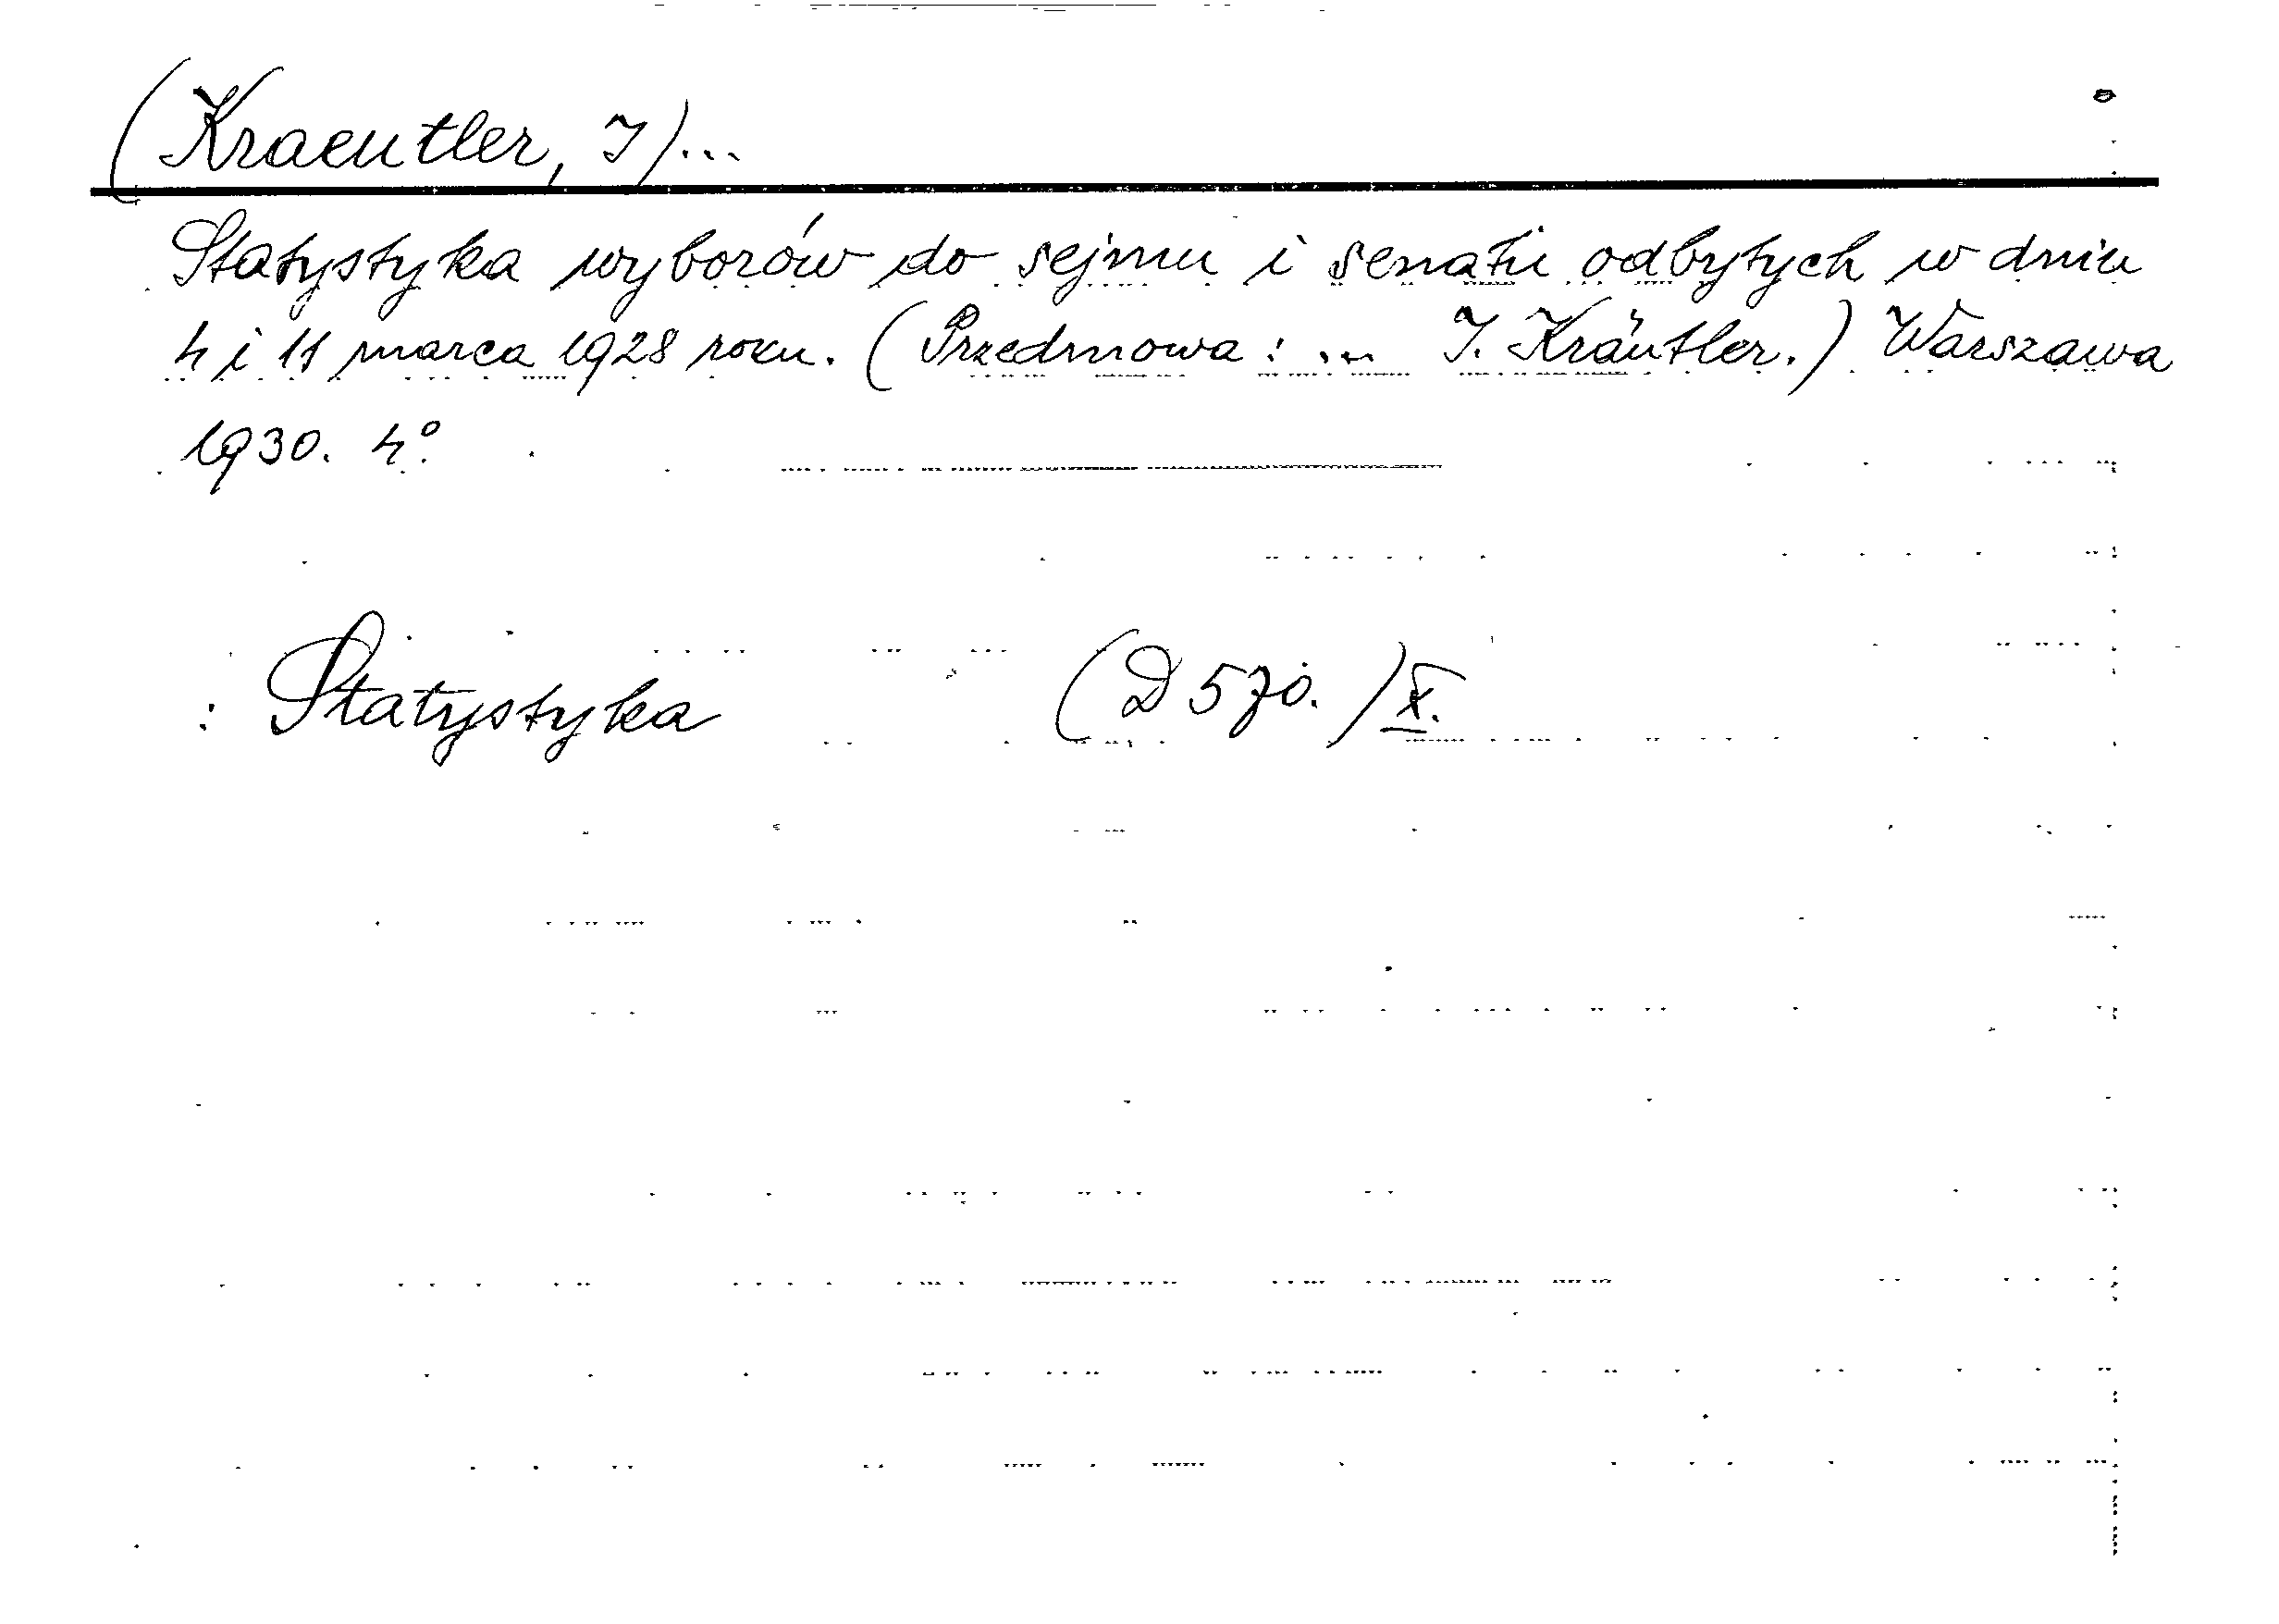 (Kraeutler, J)...
Statystyka wyborów do sejmu i senatu odbytych w dniu
4 i 11 marca 1928 roku. (Przedmowa: ... J. Kräutler.) Warszawa
1930. 4°.
: Statystyka (D 570.) X.